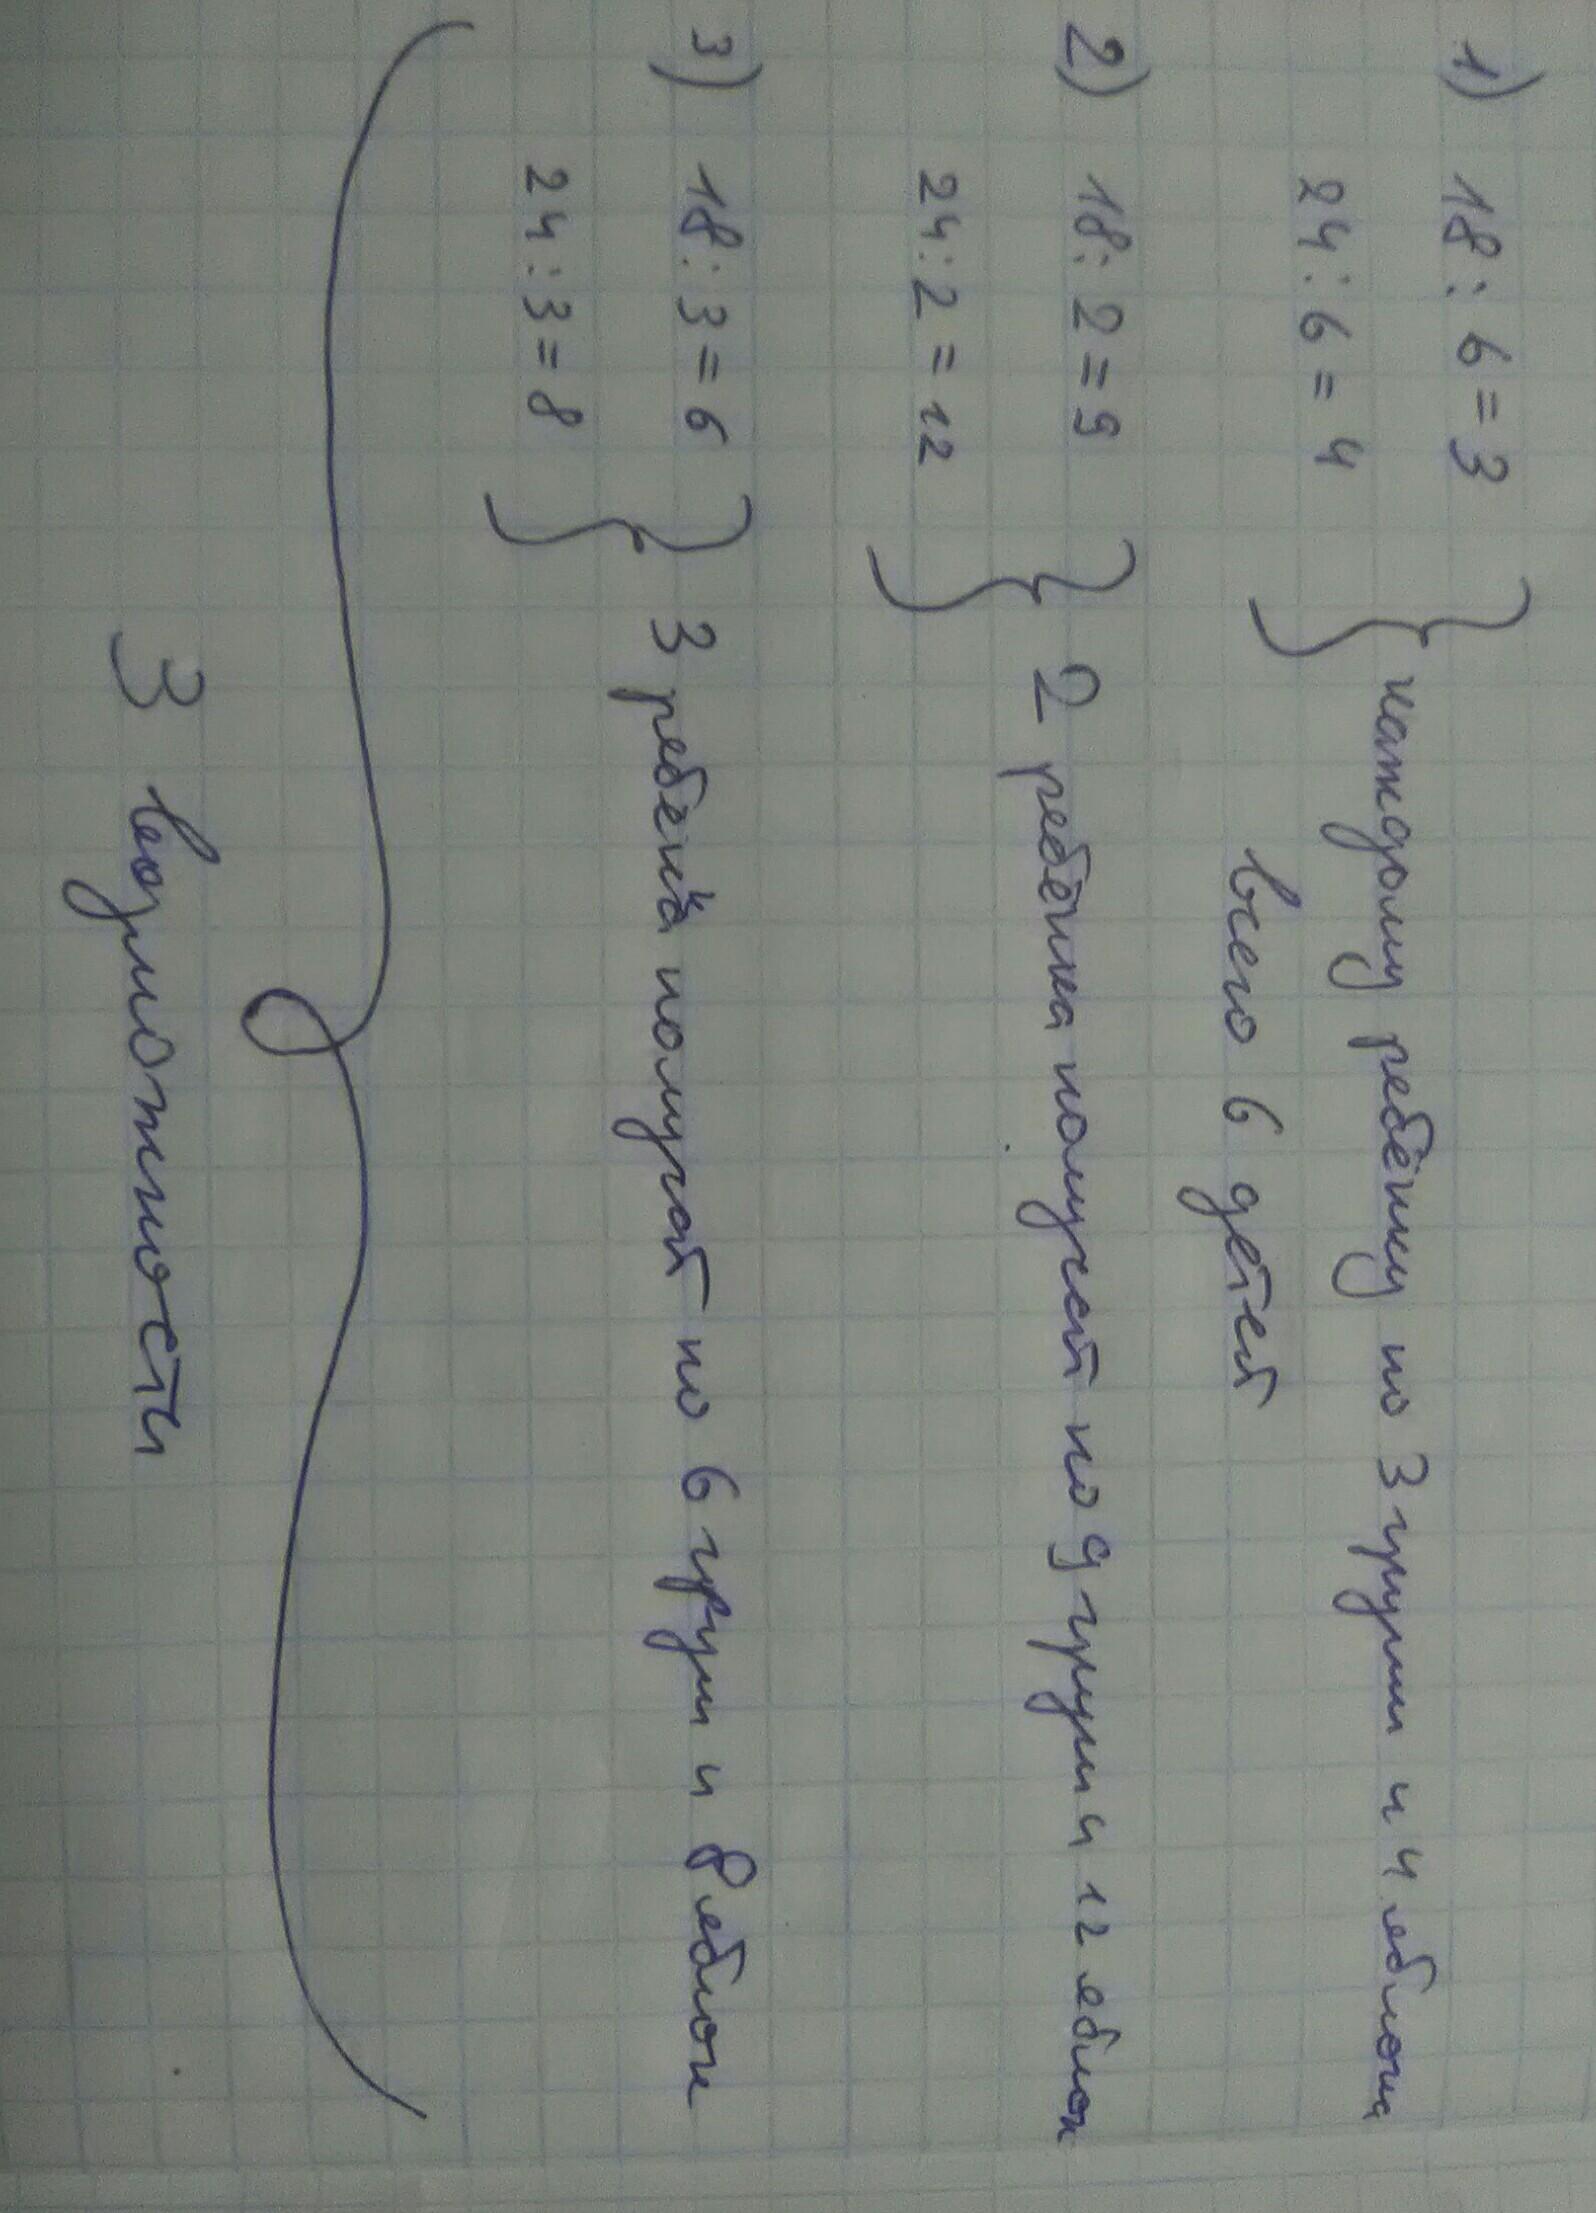 1) 18 : 6 = 3
24 : 6 = 4
каждому ребёнку по 3 груши и 4 яблока
всего 6 детей
2) 18 : 2 = 9
24 : 2 = 12
2 ребёнка получат по 9 груш и 12 яблок
3) 18 : 3 = 6
24 : 3 = 8
3 ребёнка получат по 6 груш и 8 яблок
3 возможности